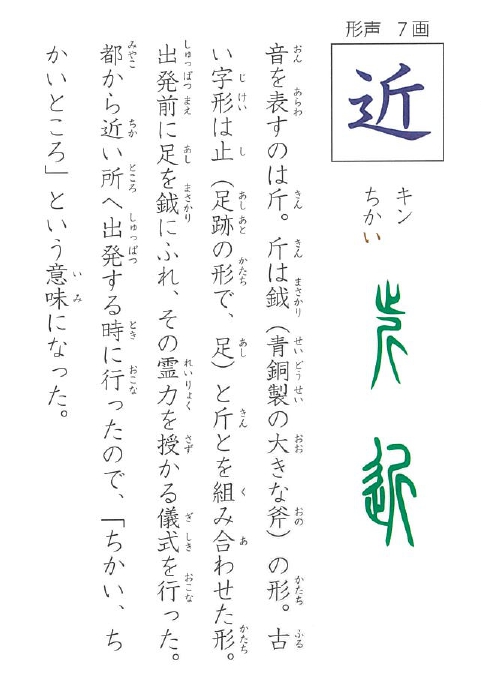 形声 7画
近
キン
ちかい
音を表すのは斤。斤は鉞(青銅製の大きな斧)の形。古
い字形は止(足跡の形で、足)と斤とを組み合わせた形。
出発前に足を鉞にふれ、その霊力を授かる儀式を行った。
都から近い所へ出発する時に行ったので、「ちかい、ち
かいところ」という意味になった。